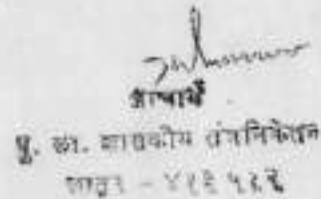 प्राचार्य
पु. ला. शासकीय तंत्रनिकेतन
लातूर - ४१३ ५१२